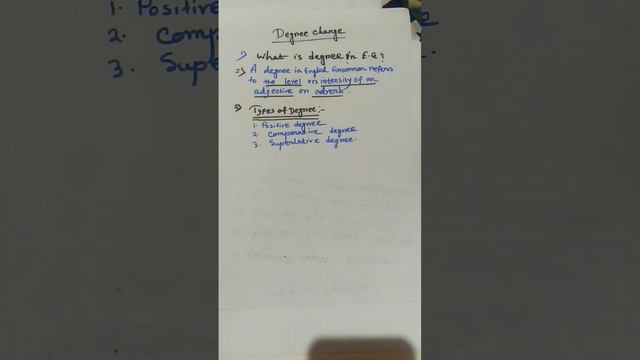 Degree change
1) What is degree in E.G?
=) A degree in English Grammar refers
to the level or intensity of an
adjective or adverb.
2) Types of Degree:-
1. Positive degree
2. Comparative degree
3. Superlative degree.
1. Positive
2. Comp
3. Supe